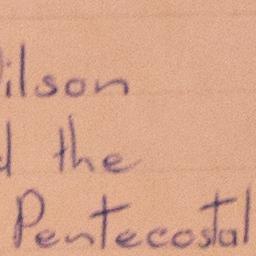 ilson
d the
Pentecostal